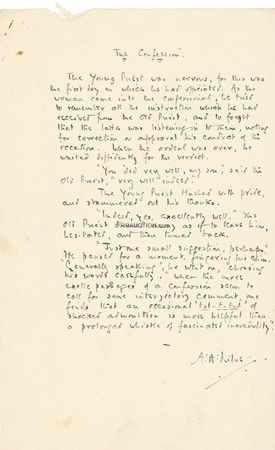 The Confession.
The Young Priest was nervous, for this was
the first day on which he had officiated. As the
woman came into the confessional, he tried
to remember all the instruction which he had
received from the Old Priest, and to forget
that the latter was listening-in to them, noting
for correction or approval his conduct of the
occasion. When the ordeal was over, he
waited diffidently for the verdict.
"You did very well, my son," said the
Old Priest, "very well indeed."
The Young Priest flushed with pride,
and stammered out his thanks.
"Indeed, yes, excellently well." The
Old Priest as if to leave him,
hesitated, and then turned back.
"Just one small suggestion, perhaps."
He paused for a moment, fingering his chin.
"Generally speaking", he went on, choosing
his words carefully, "when the more
exotic passages of a confession seem to
call for some interjectory comment, one
finds that an occasional 'tut-tut-tut' of
shocked admonition is more helpful than
a prolonged whistle of fascinated incredulity".
A. A. Milne